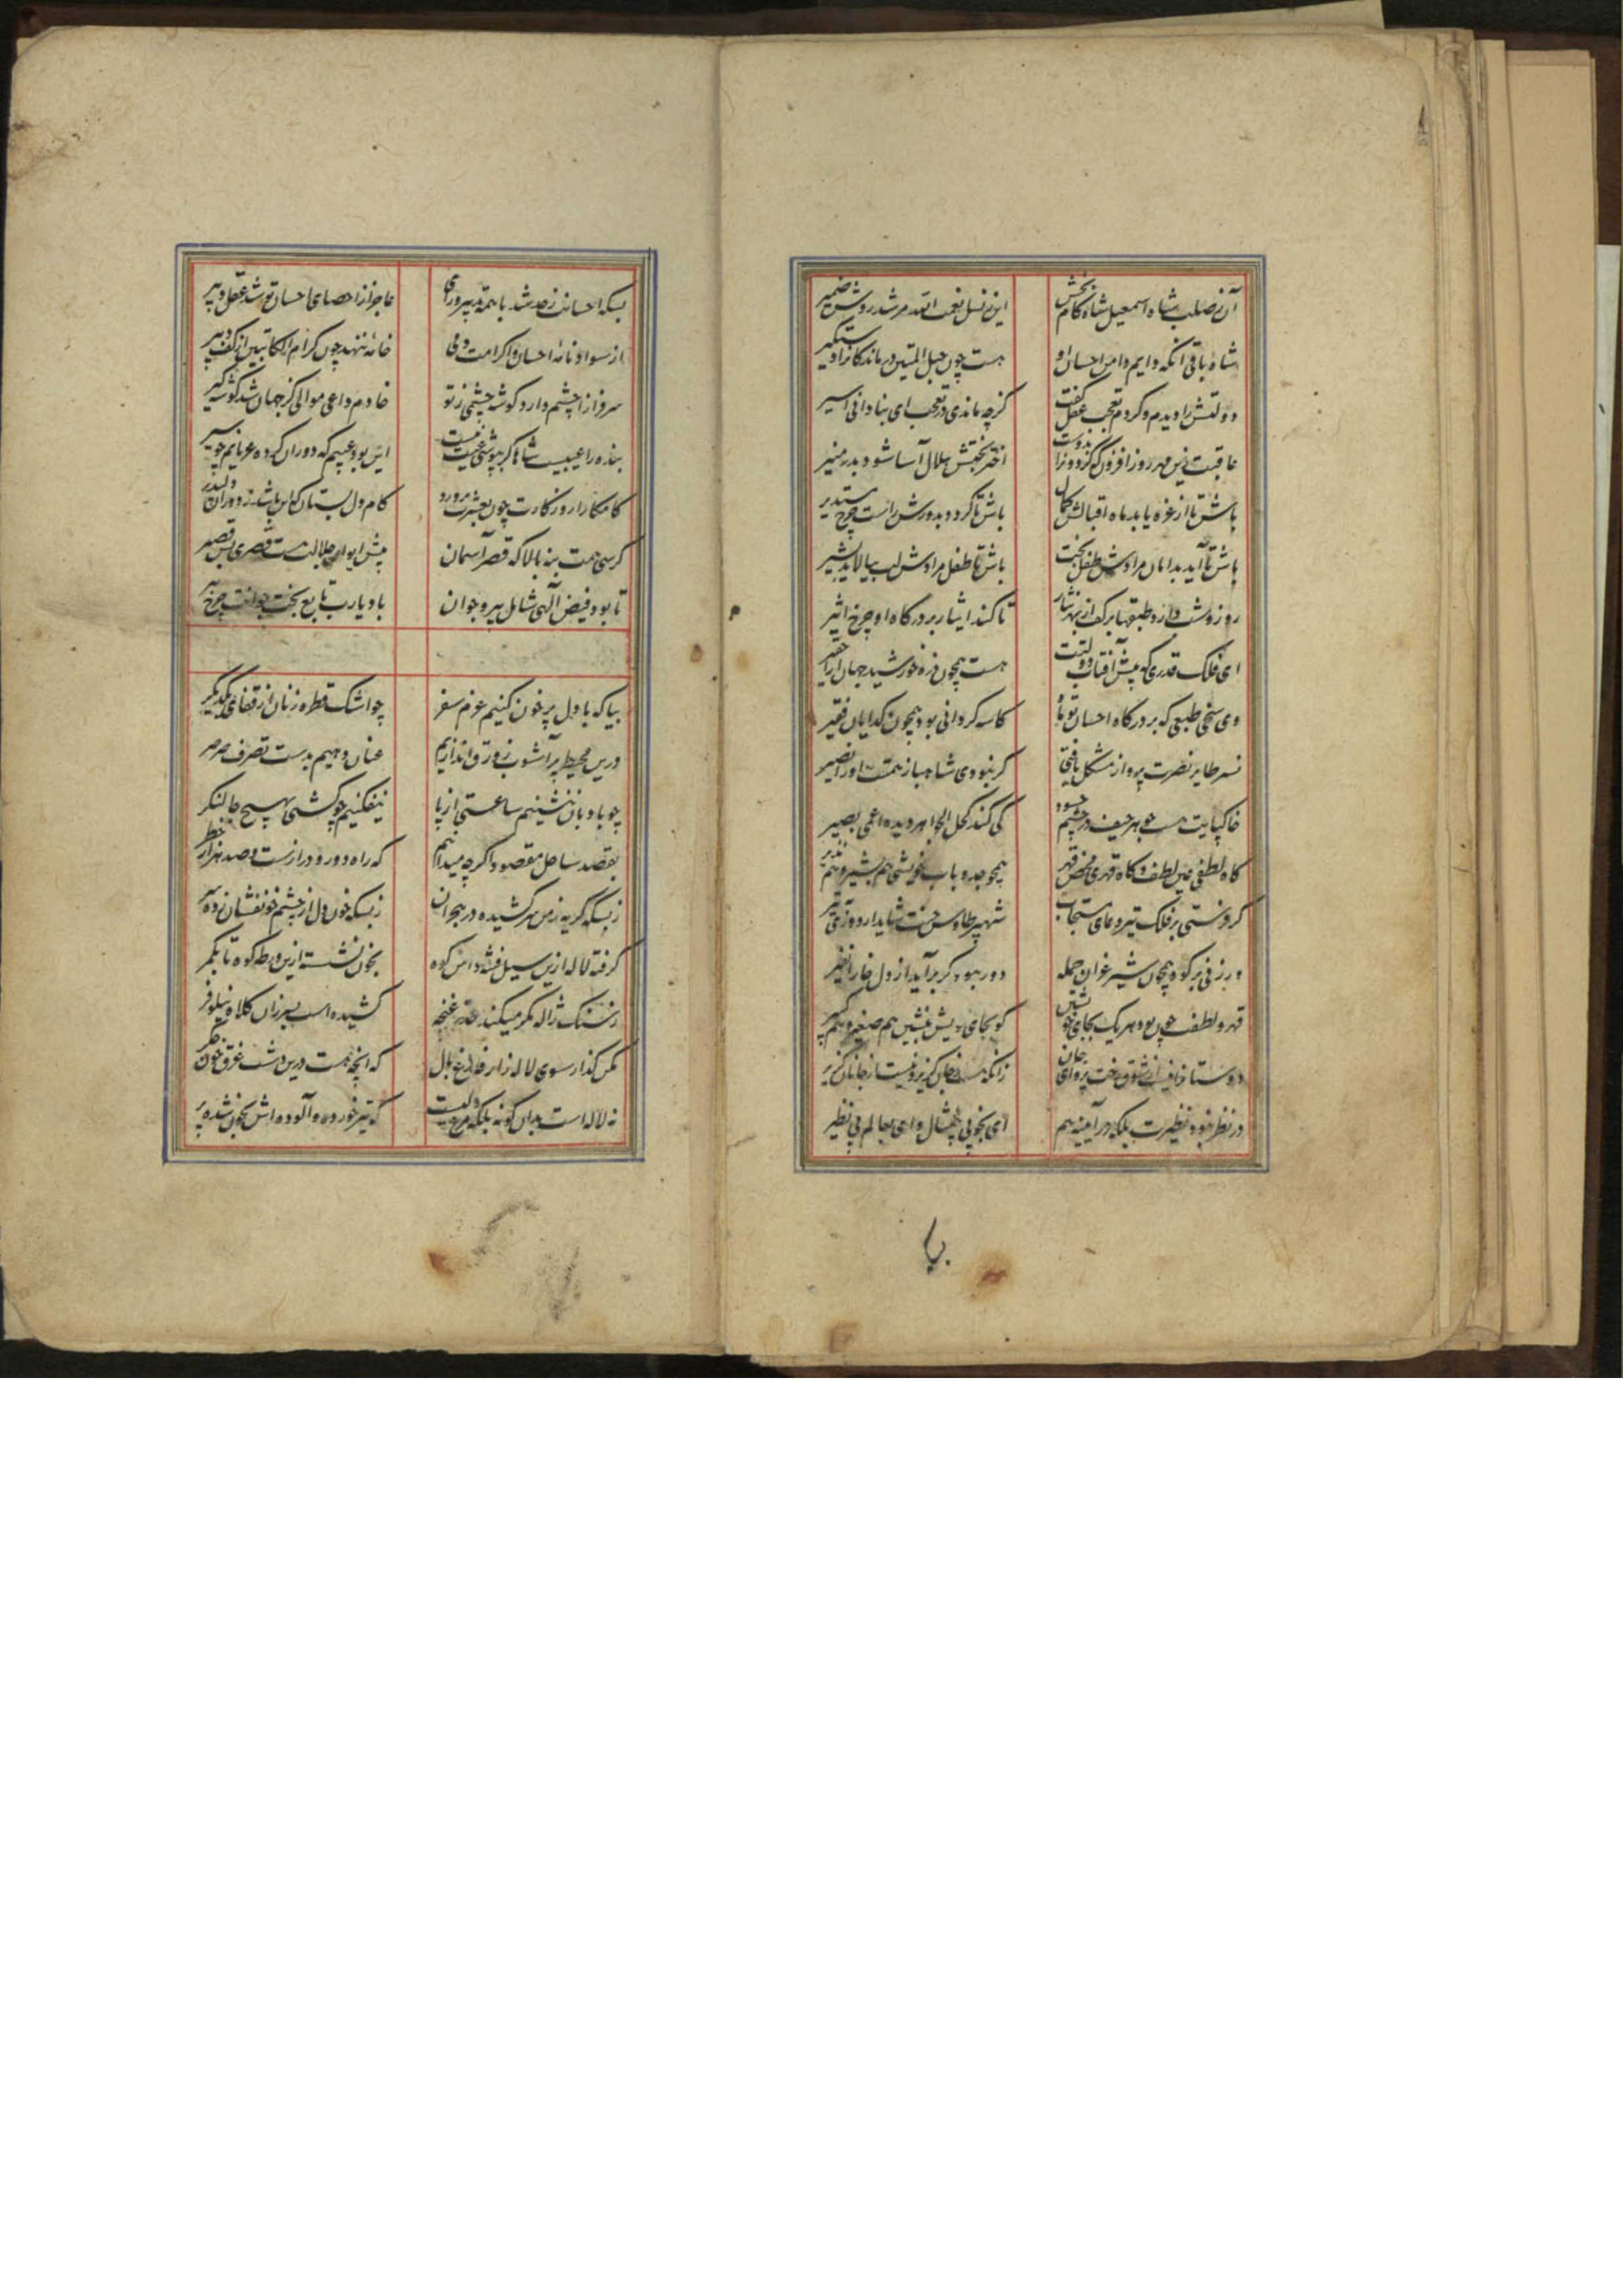 آن ز صلب شاه اسمعیل شاه کام بخش
این ز نسل نعمت الله مرشد روشن ضمیر
شاه باقی آنکه دایم دامن احسان او
هست چون حبل المتین درماندکانرا دستگیر
دولتش را دیدم و کردم تعجب عقل گفت
کز چه ماندی در تعجب ای بنادانی اسیر
عاقبت زین مهر روز افزون که کردون را بدوست
اختر بختش هلال آسا شود بدر منیر
باش تا از غره یابد ماه اقبالش کمال
باش تا کردد بدورش راست چرخ مستدیر
باش تا آید بدامان مرادش طفل بخت
باش تا طفل مرادش لب بیالاید بشیر
روز و شب دارد طبقها بر کف از بهر نثار
تا کند ایثار بر درگاه او چرخ اثیر
ای فلک قدری که پیش آفتاب دولتت
هست همچون ذره خورشید جهان آرا حقیر
وی سخی طبعی که بر درگاه احسان تو
کاسه گردانی بود همچون کدایان فقیر
نسر طایر نصرت پرواز مشکل یافتی
گر نبودی شاهباز همتت او را نصیر
خاکپایت هست حیف در چشم حسود
کی کند کحل الجواهر دیده اعمی بصیر
گاه لطفی عین لطف و گاه قهری محض قهر
همچو جد و باب خویشی هم بشیر و هم نذیر
گر فرستی بر فلک تیر دعای مستجاب
شهپر طاوس جنت شاید ار دوزی به تیر
ور زنی بر کوه همچون شیر غران حمله
دور نبود کر برآید از دل خارا نفیر
قهر و لطفت چون بود هر یک بجای خویشتن
کو بجای خویش بنشین هم صغیر و هم کبیر
در نظر نبود نظیرت بلکه در آیینه هم
ای بخوبی بیمثال و ای بعالم بی نظیر
بیا
بسکه احسانت ز حد شد با همه تدبیر و رای
عاجز از احصای احسان تو شد عقل دبیر
از سواد نامه احسان و اکرامت دمی
خامه ننهد چون کرام الکاتبین از کف دبیر
سرفرازا چشم دارد گوشه چشمی ز تو
خادم داعی موالی کز جهان شد گوشه گیر
بنده را عیبیست شاها گر بپوشی عیب نیست
این بود عیبم که دوران کرده عریانم چو سیر
کامکارا روزگارت چون بعشرت پرورد
کام دل بستان که این باشد ز دوران دلپذیر
کرسی همت بنه بالا که قصر آسمان
پیش ایوان جلالت هست قصری بس قصیر
تا بود فیض الهی شامل پیر و جوان
باد یارب تابع بخت جوانت چرخ پیر
بیا که با دل پر خون کنیم عزم سفر
چو اشک قطره زنان از قفای یکدیگر
درین محیط پر آشوب زورق اندازیم
عنان دهیم بدست تصرف صرصر
چو بادبان ننشینیم ساعتی از پا
نیفکنیم چو کشتی بهیچ جا لنگر
بقصد ساحل مقصود اگر چه میدانم
که راه دور و درازست و صد هزار خطر
ز بسکه گریه ز من سر کشیده در هجران
ز بسکه خون دل از چشم خونفشان زده سر
گرفته لاله ازین سیل فتنه دامن کوه
بخون نشسته ازین ورطه کوه تا بکمر
ز سنگ ژاله مگر میکند حذر غنچه
کشیده است بسر زان کلاه نیلوفر
مکن گذار سوی لاله زار فارغ بال
که آنچه هست درین دشت غرق خون جگر
نه لاله است بدان گونه بلکه مرغ دلیست
که تیر خورده و آلوده اش بخون شده پر